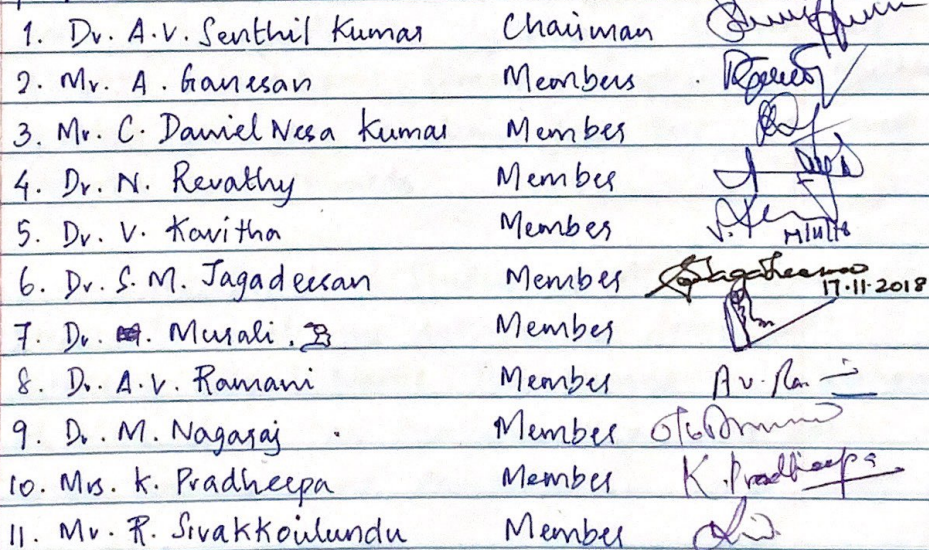 1. Dr. A.V. Senthil Kumar Chairman
2. Mr. A. Ganesan Members
3. Mr. C. Daniel Nesa Kumar Member
4. Dr. N. Revathy Member
5. Dr. V. Kavitha Member
6. Dr. S. M. Jagadeesan Member 17.11.2018
7. Dr. Murali. Member
8. Dr. A.V. Ramani Member
9. Dr. M. Nagaraj Member
10. Mrs. K. Pradheepa Member K. Pradheepa
11. Mr. R. Sivakkoulundu Member